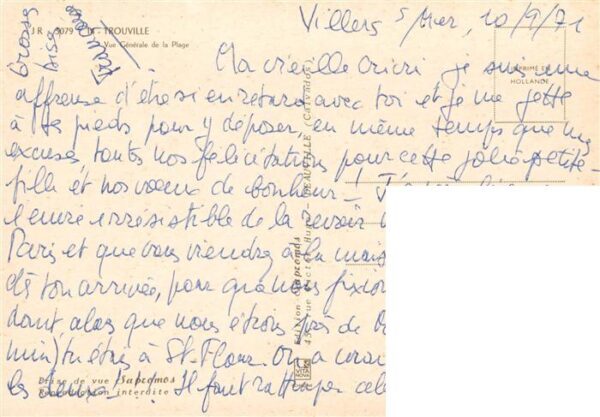 Villers s/Mer, 10/9/71
JR 3079 TROUVILLE
Vue Générale de la Plage
Grosse bise
IMPRIMÉ EN
HOLLANDE
Ma vieille Cricri je suis une
affreuse d'être si en retard avec toi et je me jette
à tes pieds pour y déposer, en même temps que mes
excuses, toutes nos félicitations pour cette jolie petite-
fille et nos vœux de bonheur_!
l'envie irrésistible de la revoir
Paris et que vous viendrez à la mais
dès ton arrivée, pour que nous fixio
dont, alors que nous étions près de
mn) tu étais à St. Flour. On a
les deux !! Il faut rattraper cel
Edition Sapromos
Prise de vue Sapromos
Reproduction interdite